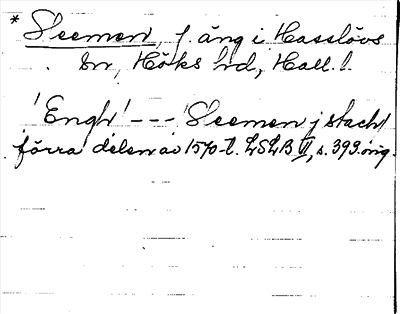 * Sleemen, f. äng i Hasslövs
sn, Höks hd, Hall. l.
'Engh' --- 'Sleemen j stach'
förra delen av 1570-t. LSLB VI, s. 393. orig.